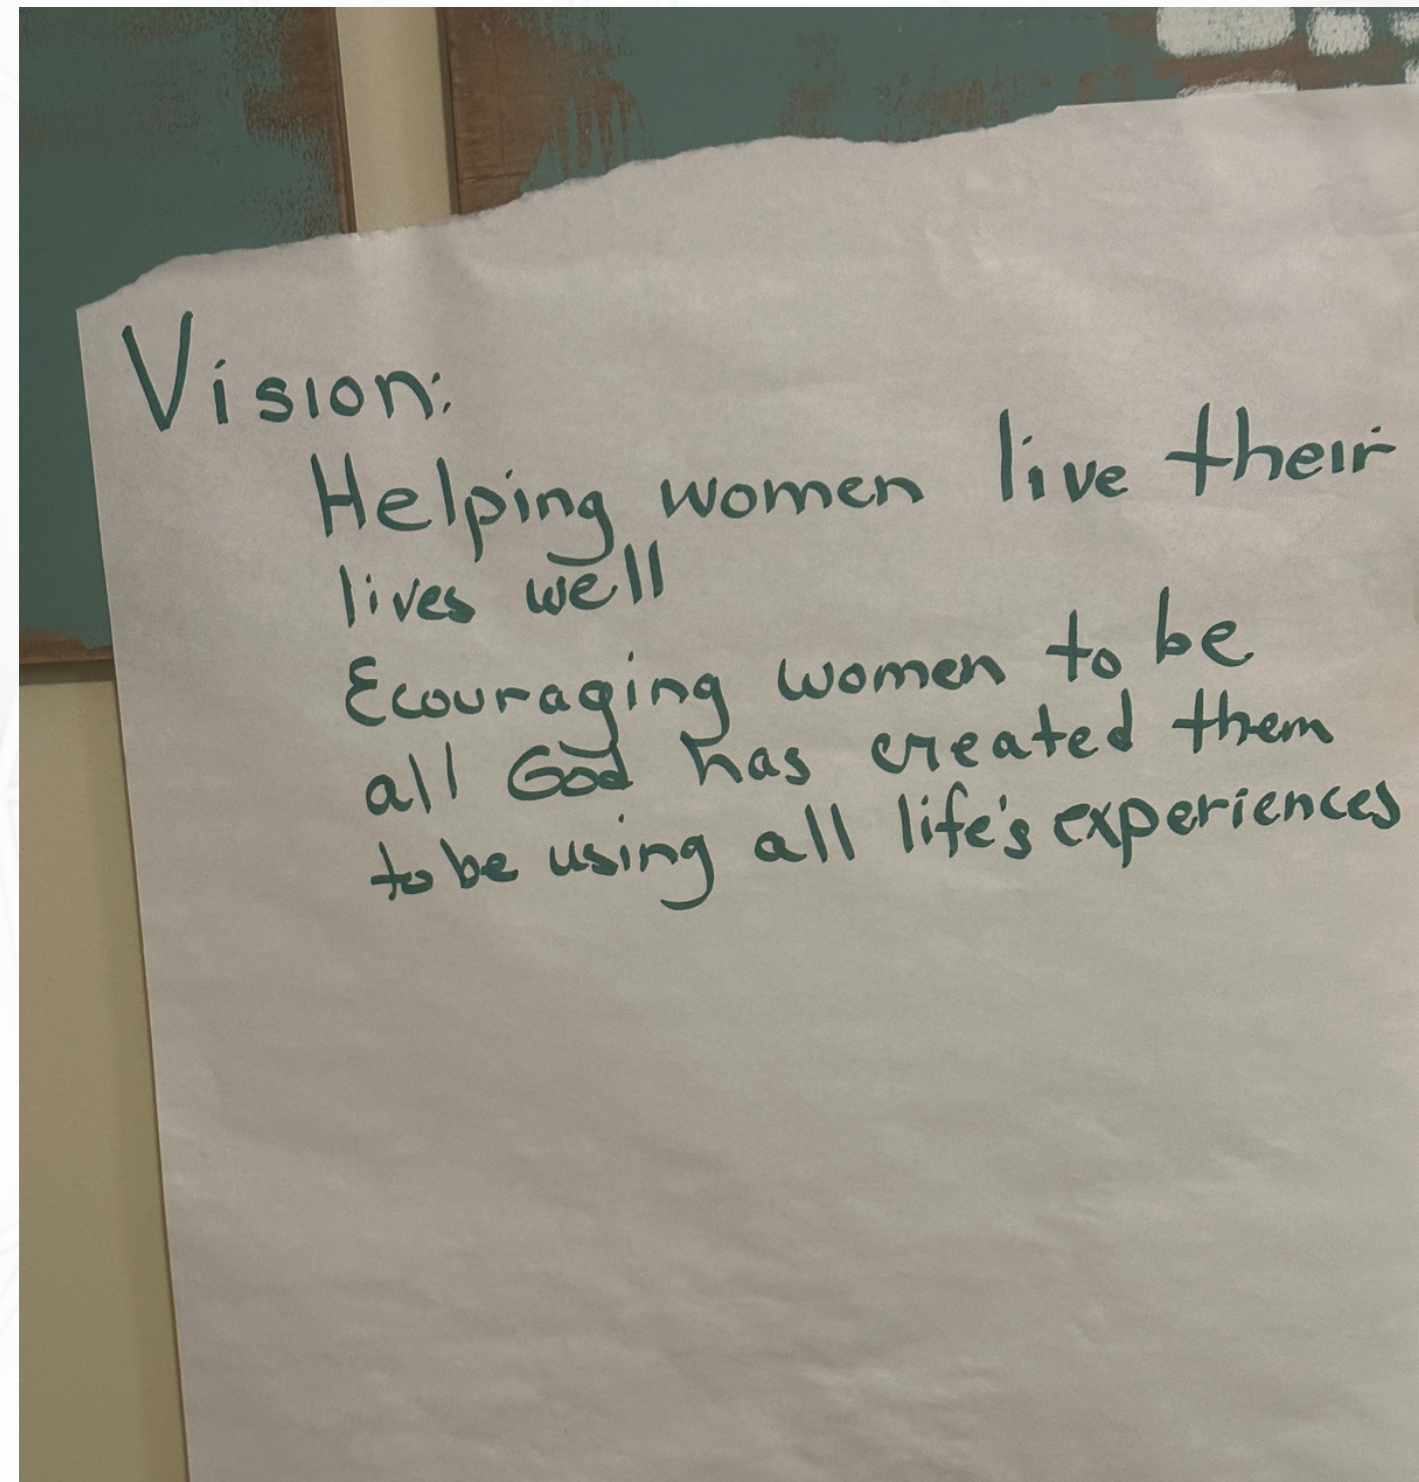 Vision:
Helping women live their
lives well
Ecouraging women to be
all God has created them
to be using all life's experiences